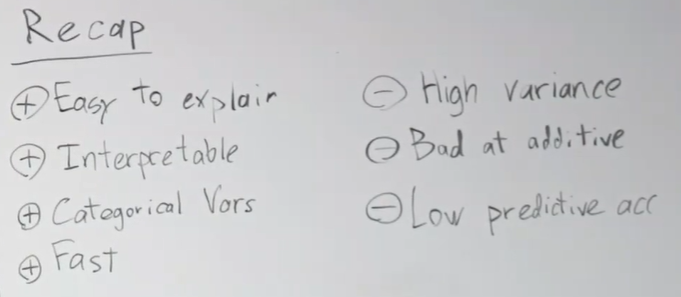 Recap
⊕ Easy to explain
⊕ Interpretable
⊕ Categorical Vars
⊕ Fast
⊖ High variance
⊖ Bad at additive
⊖ Low predictive acc